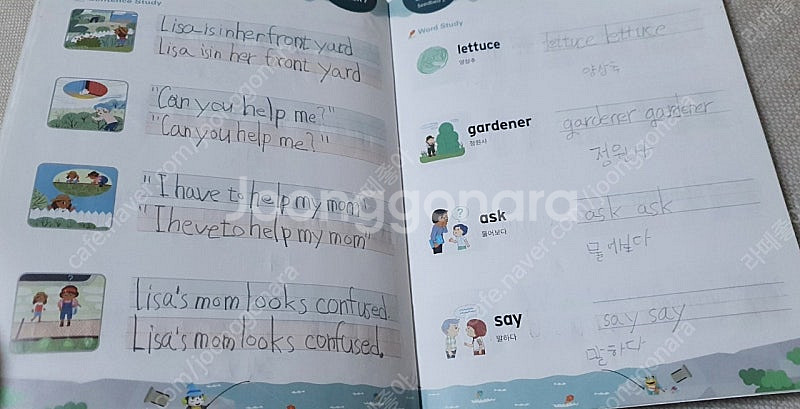 Sentence Study
Lisa is in her front yard
Lisa is in her front yard
"Can you help me?"
"Can you help me?"
"I have to help my mom"
"I heve to help my mom"
Lisa's mom looks confused.
Lisa's mom looks confused.
Word Study
lettuce
양상추
lettuce lettuce
양상추
gardener
정원사
gardener gardener
정원사
ask
물어보다
ask ask
물어보다
say
말하다
say say
말하다
Joonggonara